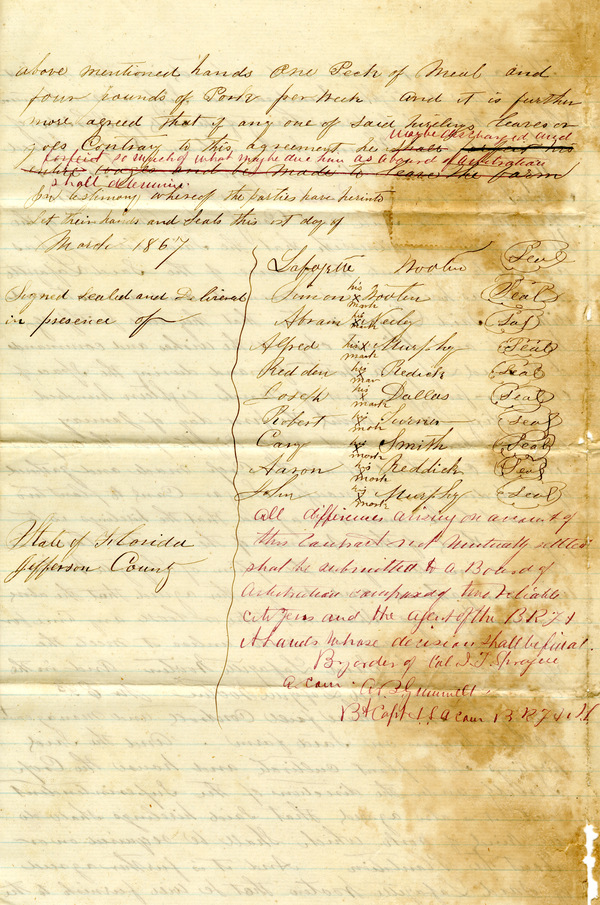 above mentioned hands One Peck of Meal and
four pounds of Pork per week and it is further
more agreed that if any one of said hirelings leaves or
maybe discharged and
goes Contrary to this agreement he shall forfeit his
forfeit so much of what may be due him as a board of arbitration
entire wages and be made to leave the farm
shall determine
In testimony whereof the parties have hereinto
Set their hands and Seals this 1st day of
March 1867
Signed Sealed and Delivered
in presence of
Lafayette Wooten Seal
Simon his x mark Wooten Seal
Abram his x mark Neely Seal
Alfred his x mark Murphy Seal
Redden his x mark Redick Seal
Joseph his x mark Dallas Seal
Robert his x mark Seal
Cary his x mark Smith Seal
Aaron his x mark Reddick Seal
John his x mark Murphy Seal
State of Florida
Jefferson County
All differences arising on account of
this Contract not Mutually settled
shall be submitted to a Board of
Arbitration composed of two reliable
citizens and the agent of the B R F &
A Lands whose decision shall be final
By order of Col J. T. Sprague
a com. A. B. Grunwell
Bt Capt U.S.A com B R F & A L